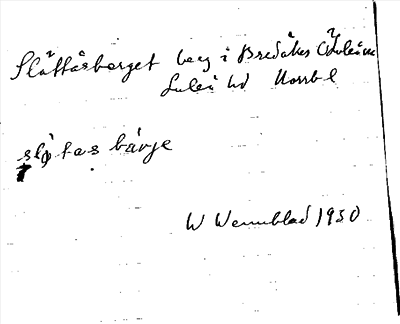 Slåttåsberget berg i Bredåker Ö Luleå sn
Luleå hd Norrb l
slåtasbärje
W Wennblad 1930